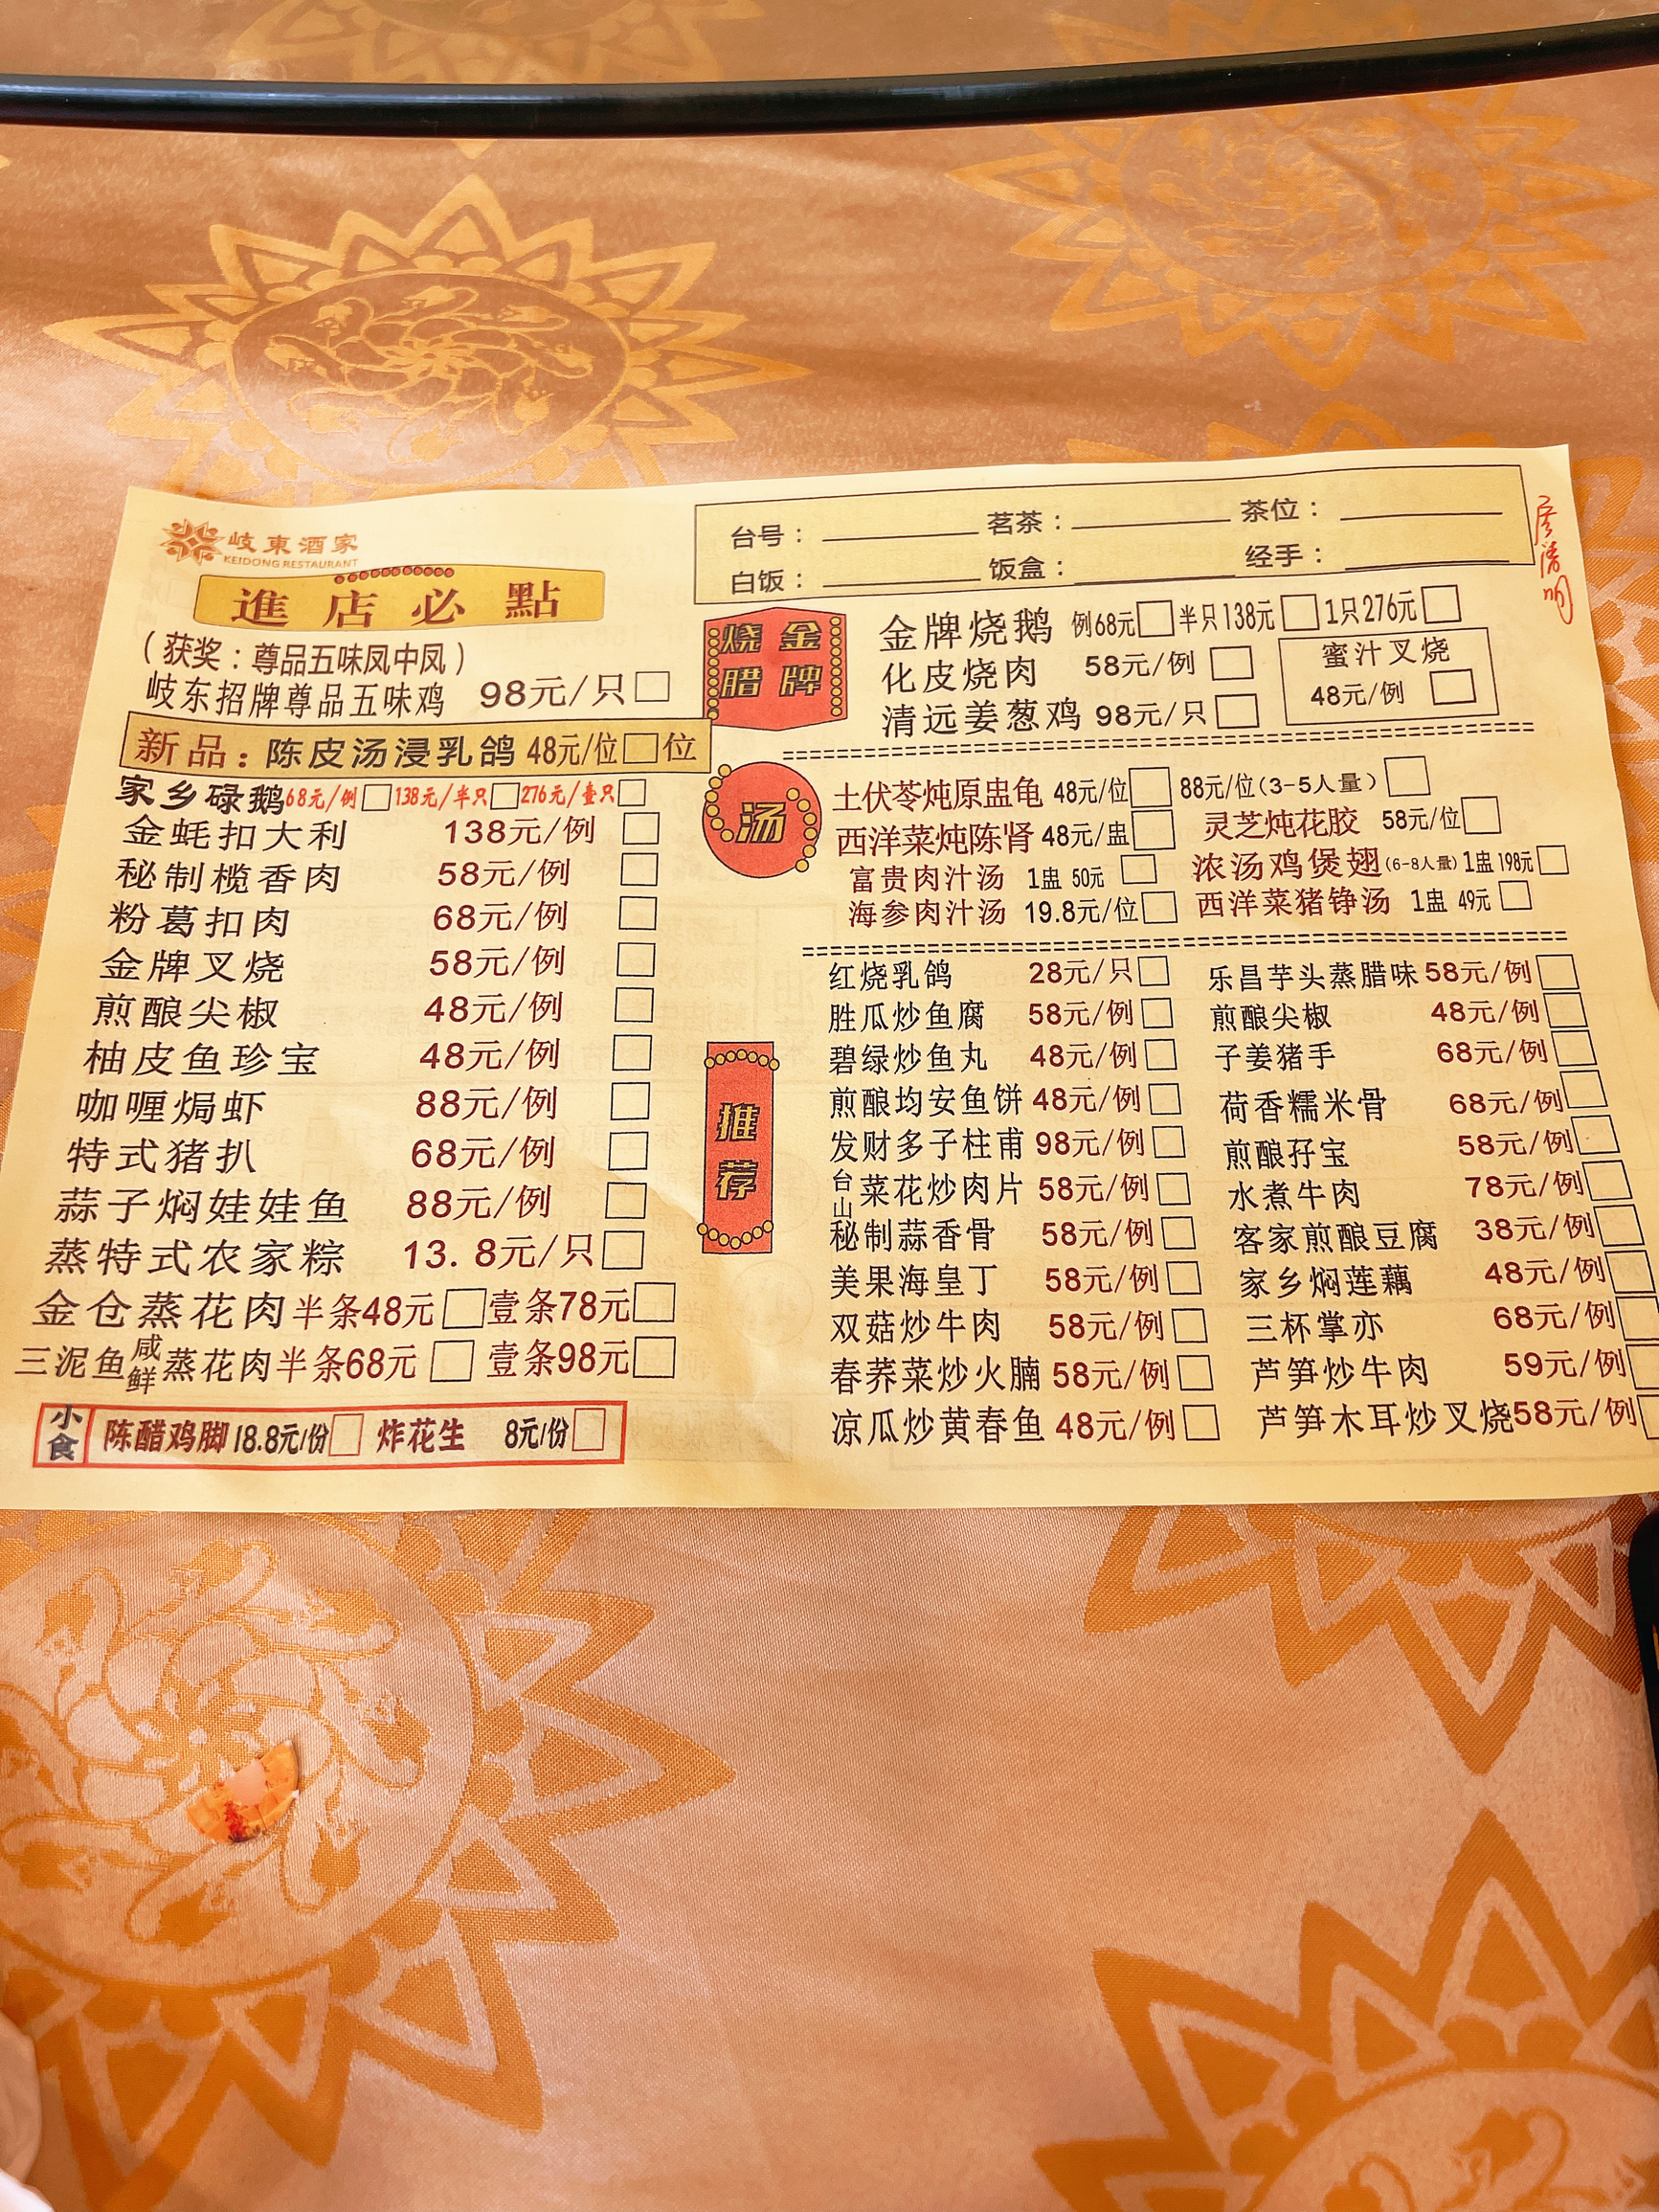 岐東酒家
KEIDONG RESTAURANT
進店必點
（获奖：尊品五味凤中凤）
岐东招牌尊品五味鸡 98元/只
新品：陈皮汤浸乳鸽 48元/位 位
家乡碌鹅 68元/例 138元/半只 276元/壹只
金蚝扣大利 138元/例
秘制榄香肉 58元/例
粉葛扣肉 68元/例
金牌叉烧 58元/例
煎酿尖椒 48元/例
柚皮鱼珍宝 48元/例
咖喱焗虾 88元/例
特式猪扒 68元/例
蒜子焖娃娃鱼 88元/例
蒸特式农家粽 13.8元/只
金仓蒸花肉 半条48元 壹条78元
三泥鱼咸鲜蒸花肉 半条68元 壹条98元
小食 陈醋鸡脚 18.8元/份 炸花生 8元/份
台号： 茗茶： 茶位：
白饭： 饭盒： 经手：
金牌烧腊
金牌烧鹅 例68元 半只138元 1只276元
化皮烧肉 58元/例
清远姜葱鸡 98元/只
蜜汁叉烧
48元/例
汤
土伏苓炖原盅龟 48元/位 88元/位(3-5人量)
西洋菜炖陈肾 48元/盅 灵芝炖花胶 58元/位
富贵肉汁汤 1盅 50元 浓汤鸡煲翅(6-8人量) 1盅 198元
海参肉汁汤 19.8元/位 西洋菜猪铮汤 1盅 49元
推荐
红烧乳鸽 28元/只 乐昌芋头蒸腊味 58元/例
胜瓜炒鱼腐 58元/例 煎酿尖椒 48元/例
碧绿炒鱼丸 48元/例 子姜猪手 68元/例
煎酿均安鱼饼 48元/例 荷香糯米骨 68元/例
发财多子柱甫 98元/例 煎酿孖宝 58元/例
台山菜花炒肉片 58元/例 水煮牛肉 78元/例
秘制蒜香骨 58元/例 客家煎酿豆腐 38元/例
美果海皇丁 58元/例 家乡焖莲藕 48元/例
双菇炒牛肉 58元/例 三杯掌亦 68元/例
春荞菜炒火腩 58元/例 芦笋炒牛肉 59元/例
凉瓜炒黄春鱼 48元/例 芦笋木耳炒叉烧 58元/例